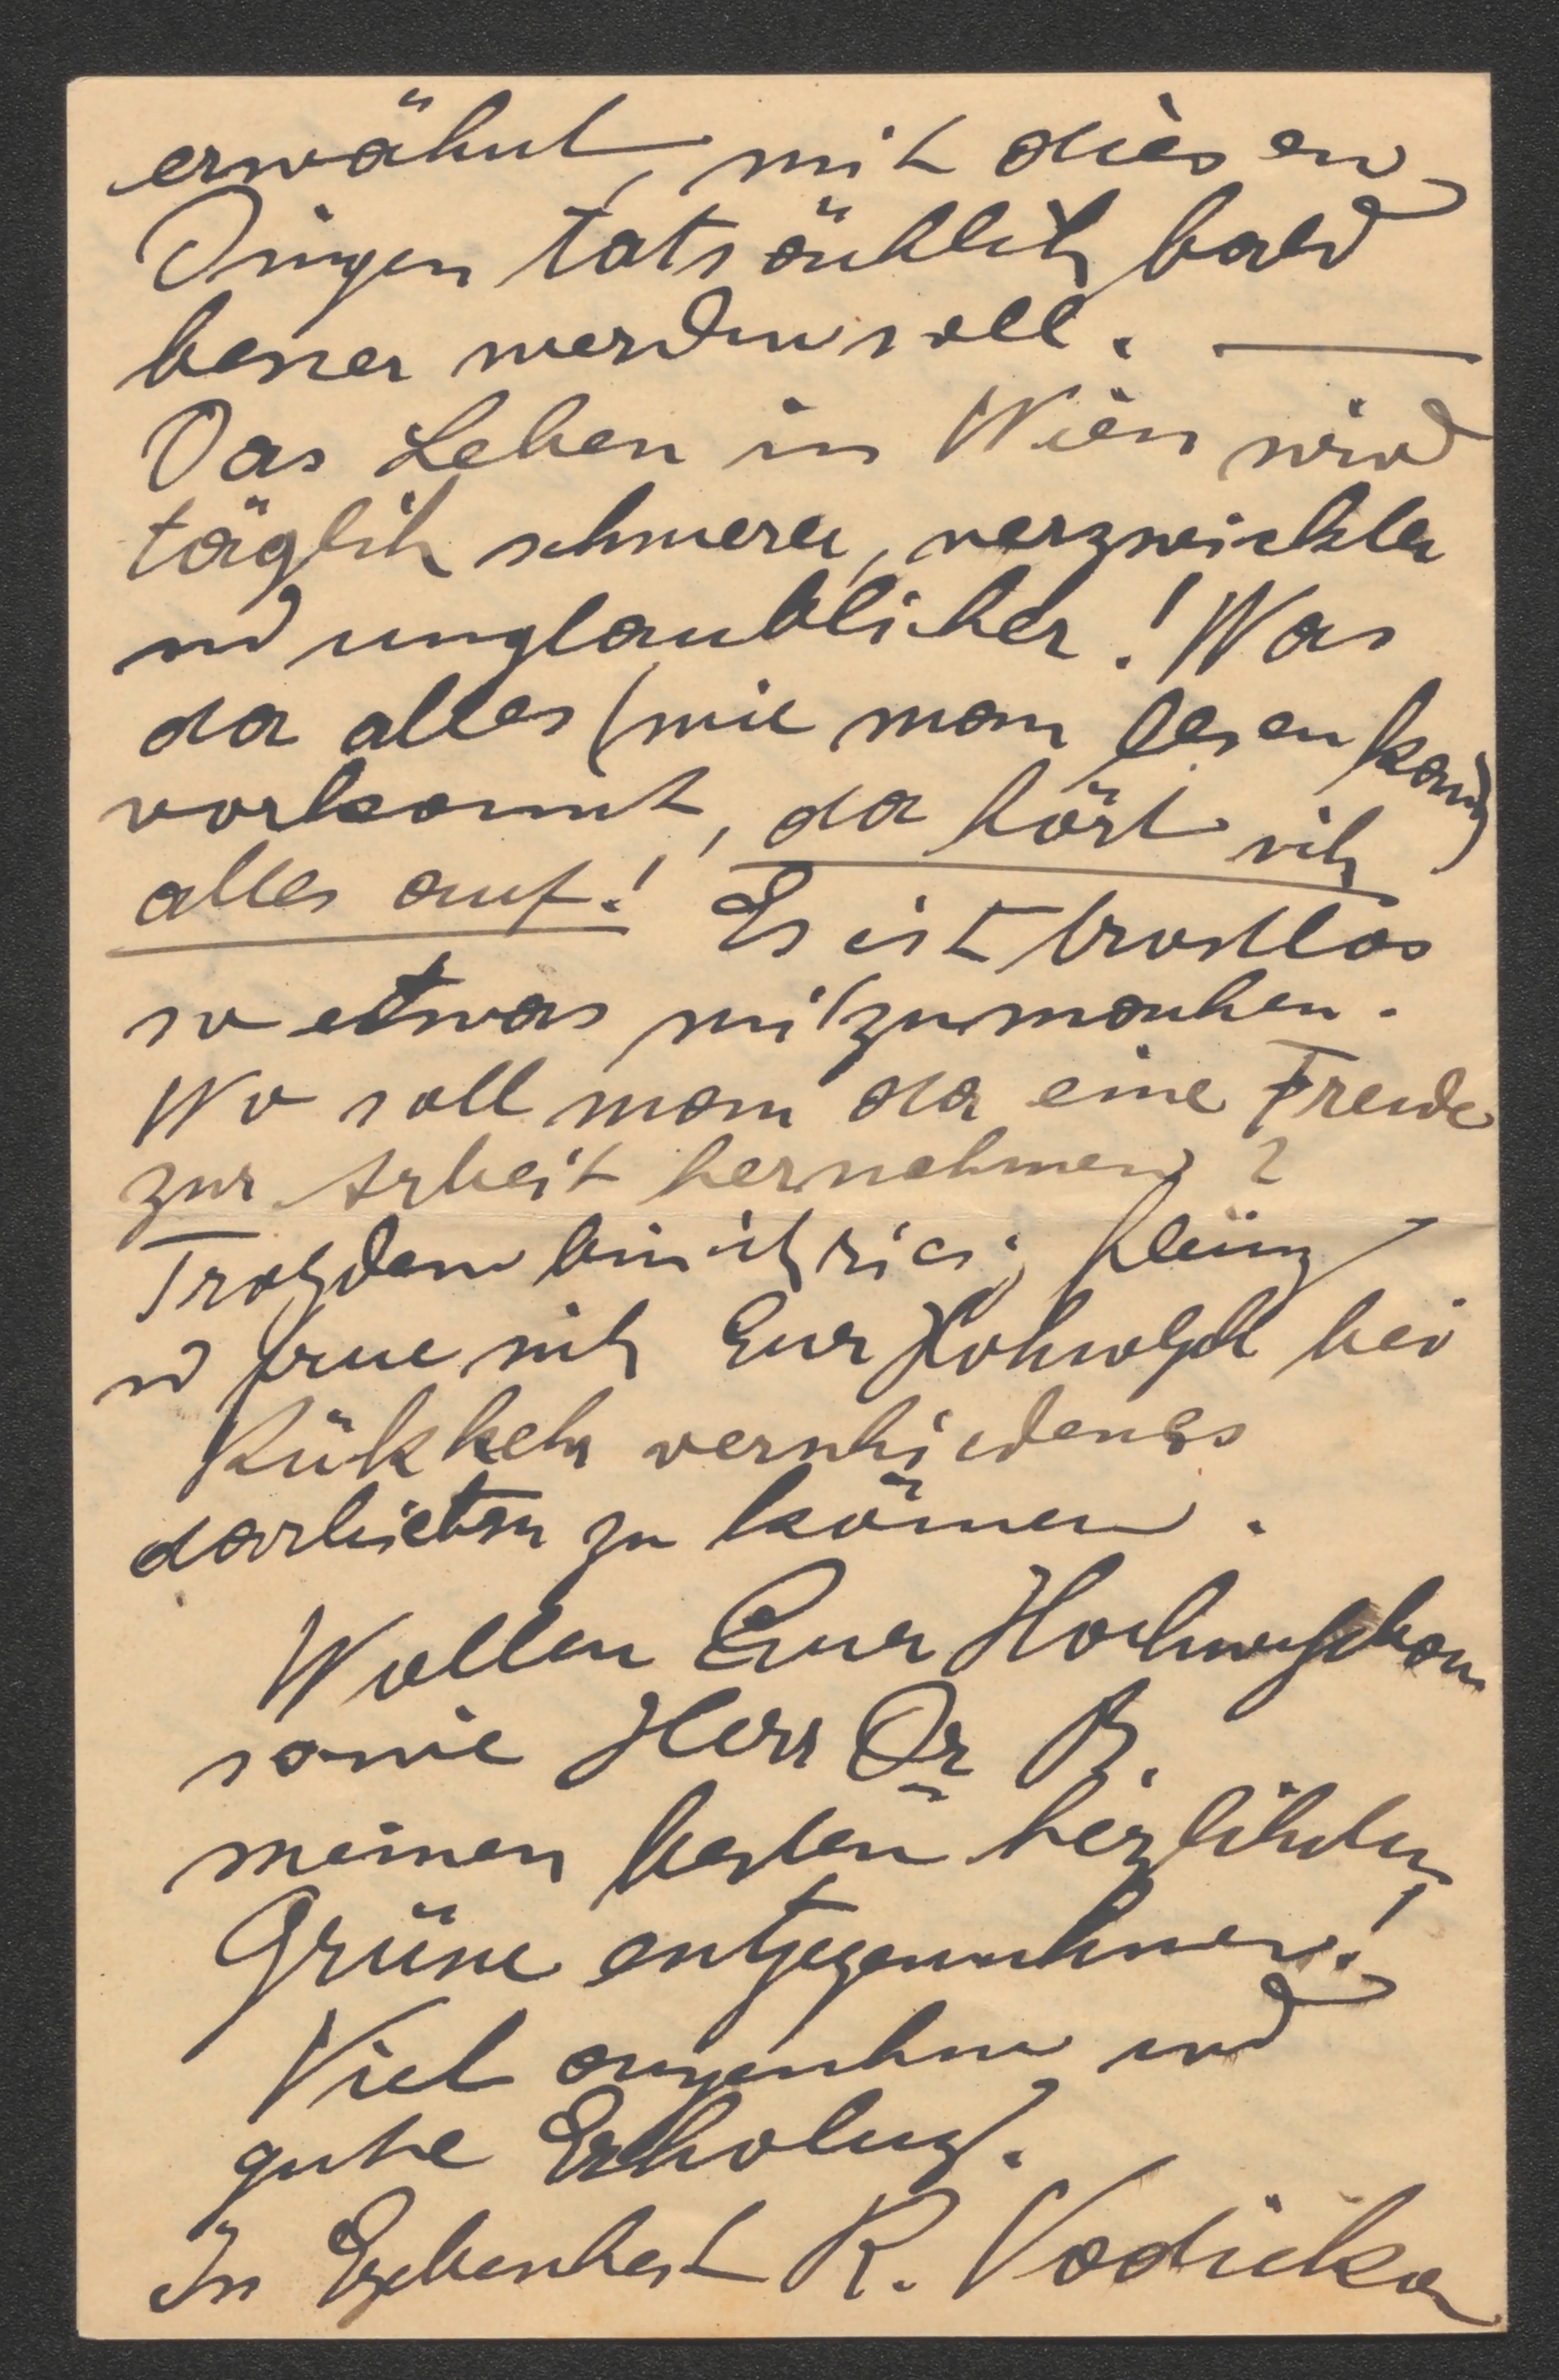 erwähnt, mit diesen
Dingen tatsächlich bald
besser werden soll. —
Das Leben in Wien wird
täglich schwerer, verzwickter
und unglaublicher! Was
da alles (wie man lesen kann)
vorkommt, da hört sich
alles auf! Es ist trostlos
so etwas mitzumachen.
Wo soll man da eine Freude
zur Arbeit hernehmen?
Trotzdem bin ich riesig fleißig
u freue mich Euer Hochwgb bei
Rükkehr verschiedenes
darbieten zu können.
Wollen Euer Hochwgeboren
sowie Herr Dr B.
meinen besten herzlichsten
Grüsse entgegennehmen!
Viel angenehme und
gute Erholung.
In Ergebenheit R. Vodicka